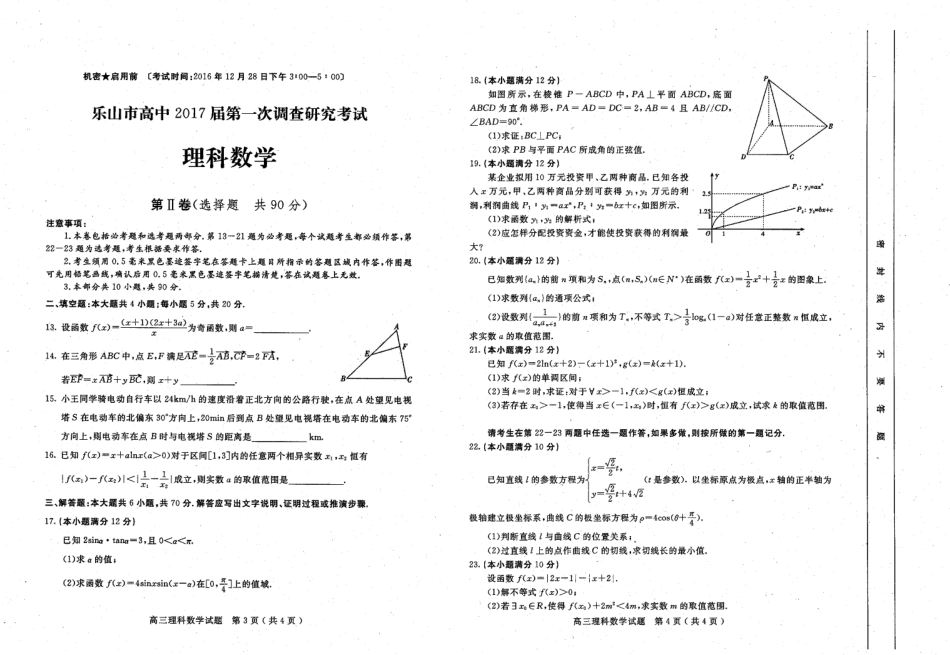 机密★启用前 〔考试时间:2016年12月28日下午3:00—5:00〕
乐山市高中2017届第一次调查研究考试
理科数学
第Ⅱ卷(选择题 共90分)
注意事项:
1.本卷包括必考题和选考题两部分.第13-21题为必考题,每个试题考生都必须作答,第
22-23题为选考题,考生根据要求作答.
2.考生须用0.5毫米黑色墨迹签字笔在答题卡上题目所指示的答题区域内作答,作图题
可先用铅笔画线,确认后用0.5毫米黑色墨迹签字笔描清楚,答在试题卷上无效.
3.本部分共10小题,共90分.
二、填空题:本大题共4小题;每小题5分,共20分.
13. 设函数 f(x)=\frac{(x+1)(2x+3a)}{x}为奇函数,则a=________.
14. 在三角形ABC中,点E,F满足\vec{AE}=\frac{1}{2}\vec{AB},\vec{CF}=2\vec{FA},
若\vec{EF}=x\vec{AB}+y\vec{BC},则x+y________.
A
E
F
B
C
15. 小王同学骑电动自行车以24km/h的速度沿着正北方向的公路行驶,在点A处望见电视
塔S在电动车的北偏东30°方向上,20min后到点B处望见电视塔在电动车的北偏东75°
方向上,则电动车在点B时与电视塔S的距离是________km.
16. 已知f(x)=x+alnx(a>0)对于区间[1,3]内的任意两个相异实数x₁,x₂恒有
|f(x₁)-f(x₂)|<|\frac{1}{x₁}-\frac{1}{x₂}|成立,则实数a的取值范围是________.
三、解答题:本大题共6小题,共70分.解答应写出文字说明、证明过程或推演步骤.
17.(本小题满分12分)
已知2sinα·tanα=3,且0<α<π.
(1)求α的值;
(2)求函数f(x)=4sinxsin(x-α)在[0,\frac{π}{4}]上的值域.
高三理科数学试题 第3页(共4页)
18.(本小题满分12分)
如图所示,在棱锥P-ABCD中,PA⊥平面ABCD,底面
ABCD为直角梯形,PA=AD=DC=2,AB=4且AB//CD,
∠BAD=90°.
(1)求证:BC⊥PC;
(2)求PB与平面PAC所成角的正弦值.
P
A
B
D
C
19.(本小题满分12分)
某企业拟用10万元投资甲、乙两种商品.已知各投
入x万元,甲、乙两种商品分别可获得y₁,y₂万元的利
润,利润曲线P₁:y₁=axⁿ,P₂:y₂=bx+c,如图所示.
(1)求函数y₁,y₂的解析式;
(2)应怎样分配投资资金,才能使投资获得的利润最
大?
y
2.5
1.25
O
1
4
x
P₁: y₁=axⁿ
P₂: y₂=bx+c
20.(本小题满分12分)
已知数列{aₙ}的前n项和为Sₙ,点(n,Sₙ)(n∈N*)在函数f(x)=\frac{1}{2}x²+\frac{1}{2}x的图象上.
(1)求数列{aₙ}的通项公式;
(2)设数列{\frac{1}{aₙaₙ₊₂}}的前n项和为Tₙ,不等式Tₙ>\frac{1}{3}logₐ(1-a)对任意正整数n恒成立,
求实数a的取值范围.
21.(本小题满分12分)
已知f(x)=2ln(x+2)-(x+1)²,g(x)=k(x+1).
(1)求f(x)的单调区间;
(2)当k=2时,求证:对于∀x>-1,f(x)<g(x)恒成立;
(3)若存在x₀>-1,使得当x∈(-1,x₀)时,恒有f(x)>g(x)成立,试求k的取值范围.
请考生在第22-23两题中任选一题作答,如果多做,则按所做的第一题记分.
22.(本小题满分10分)
已知直线l的参数方程为\begin{cases}x=\frac{\sqrt{2}}{2}t,\\y=\frac{\sqrt{2}}{2}t+4\sqrt{2}\end{cases}(t是参数).以坐标原点为极点,x轴的正半轴为
极轴建立极坐标系,曲线C的极坐标方程为ρ=4cos(θ+\frac{π}{4}).
(1)判断直线l与曲线C的位置关系;
(2)过直线l上的点作曲线C的切线,求切线长的最小值.
23.(本小题满分10分)
设函数f(x)=|2x-1|-|x+2|.
(1)解不等式f(x)>0;
(2)若∃x₀∈R,使得f(x₀)+2m²<4m,求实数m的取值范围.
高三理科数学试题 第4页(共4页)
密封线内不要答题